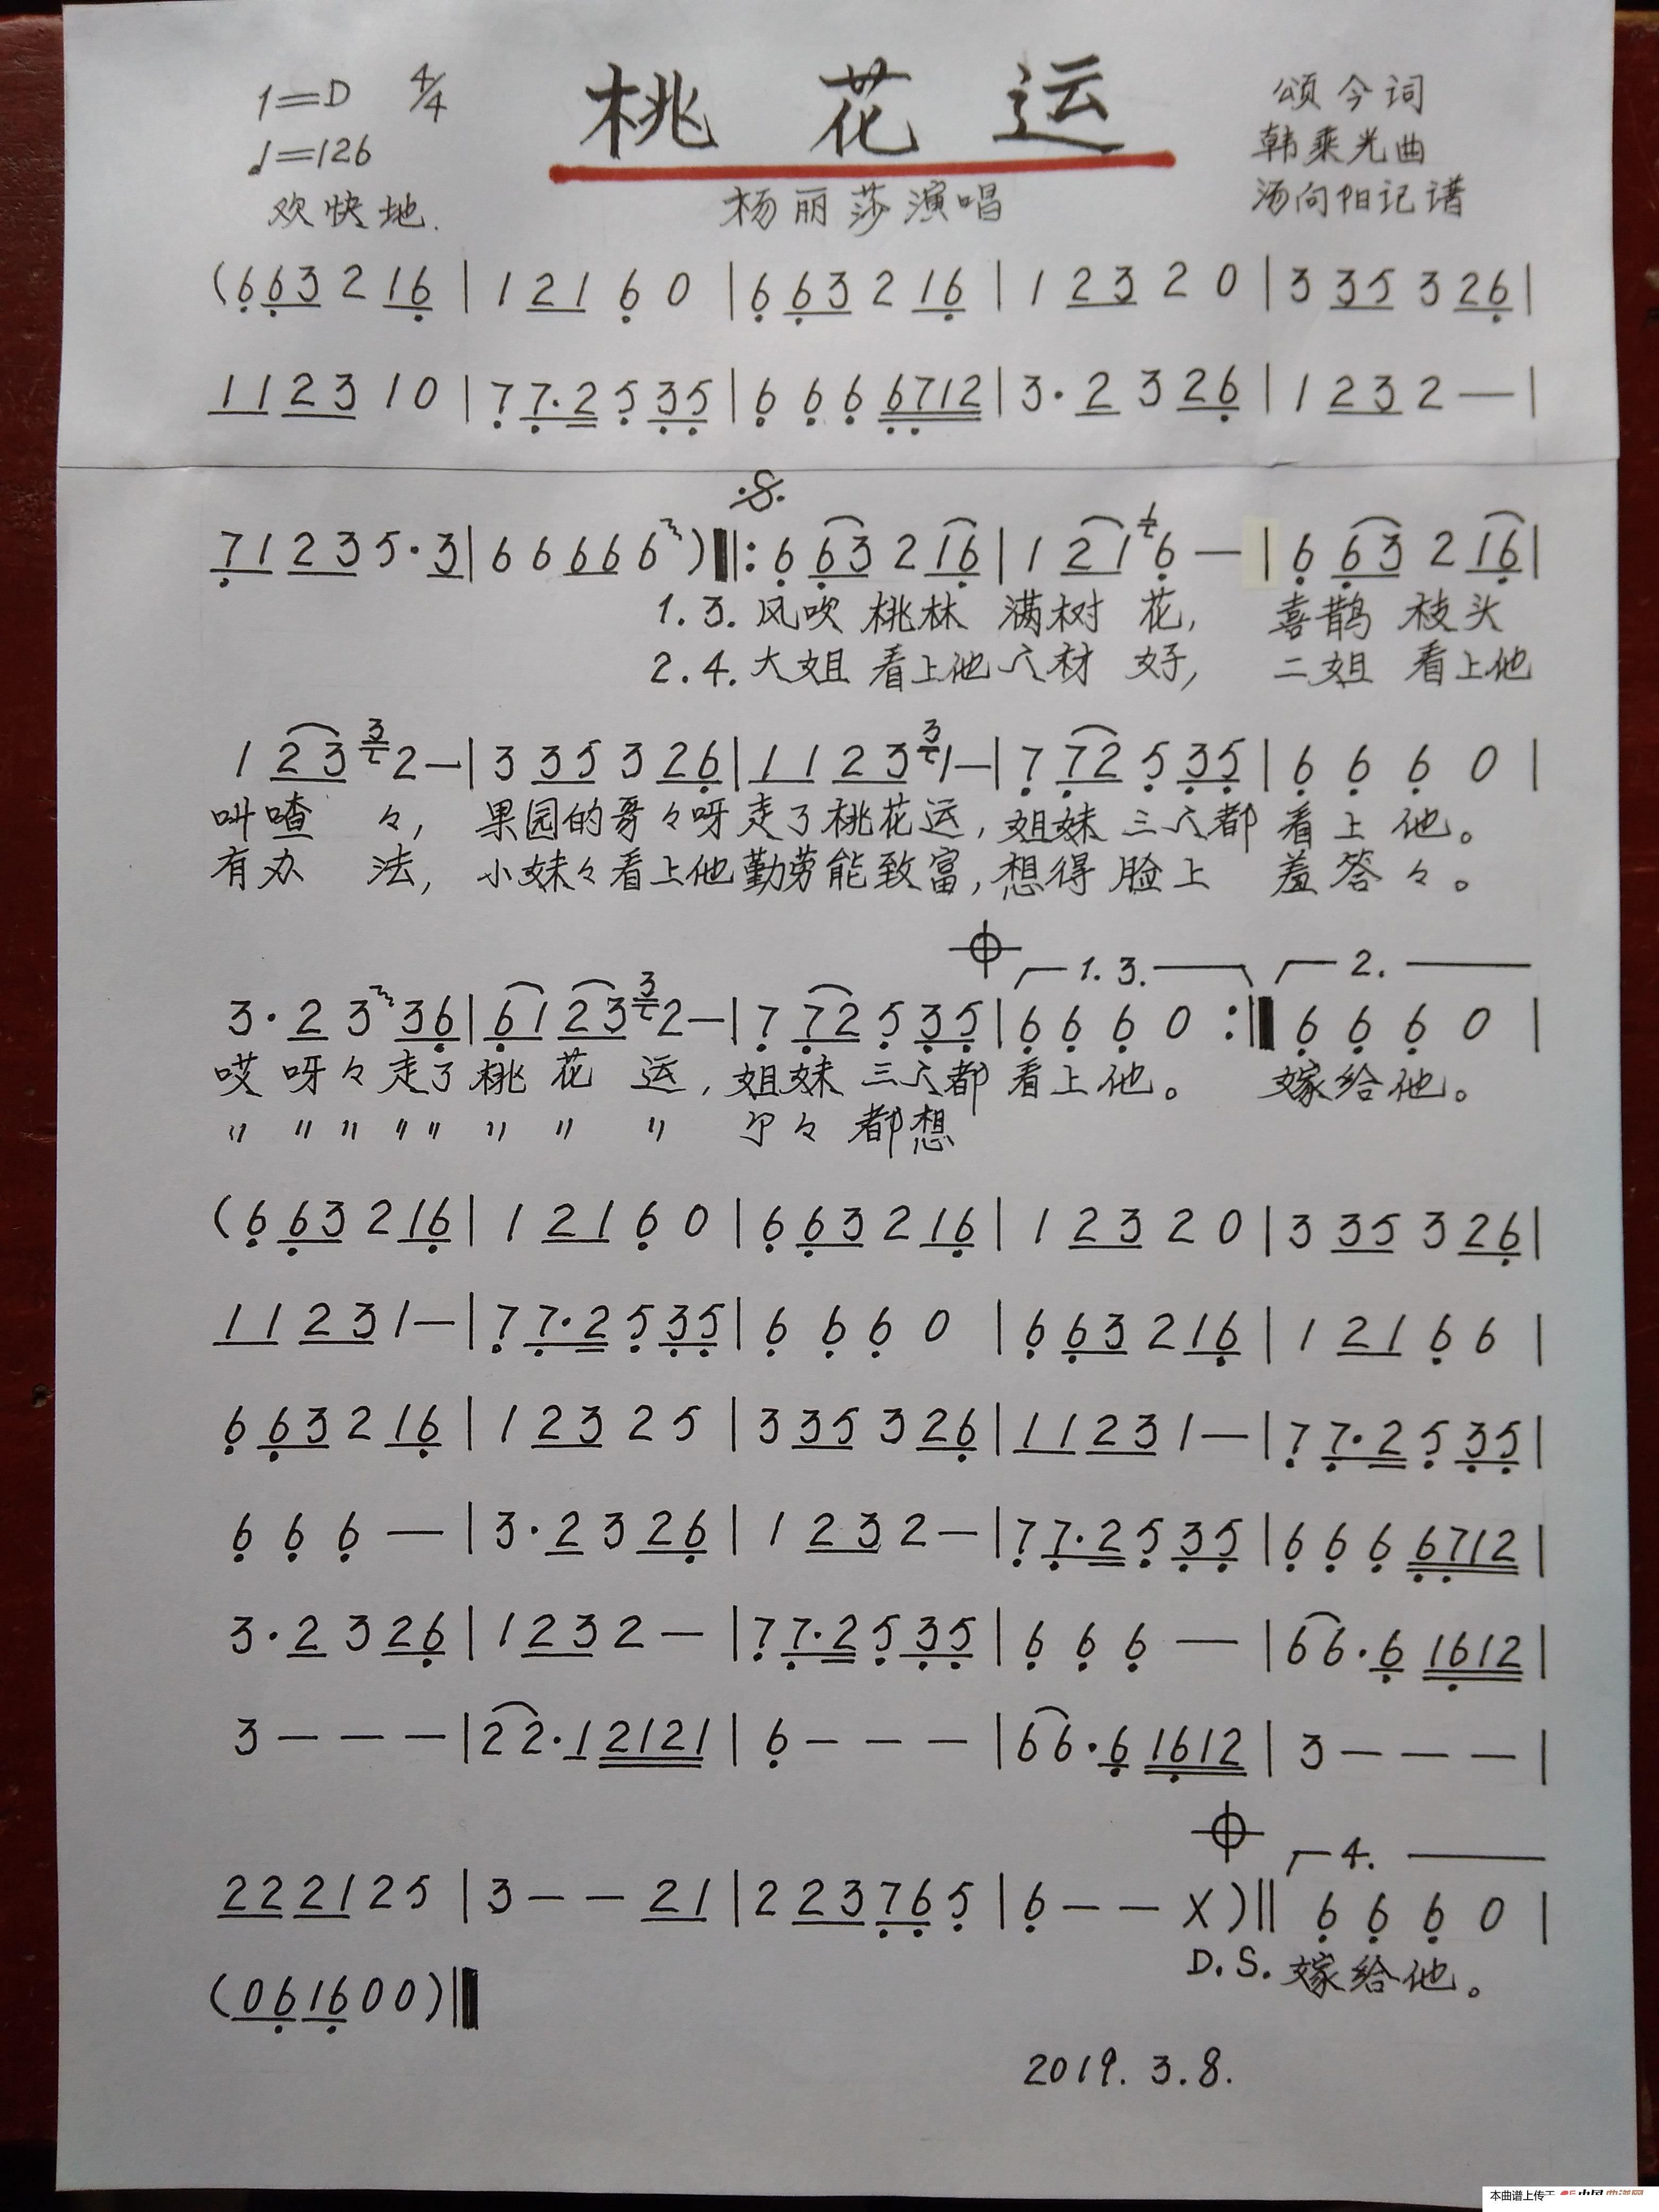 1=D 4/4 桃花运 颂今词
♩=126 韩乘光曲
欢快地. 杨丽莎演唱 汤向阳记谱
(6 63 2 16 | 1 21 6 0 | 6 63 2 16 | 1 23 2 0 | 3 35 3 26 |
11 23 1 0 | 7 7·2 5 35 | 6 6 6 6712 | 3·2 3 26 | 1 23 2 — |
71 23 5·3 | 6 6 66 6 ) ‖: 6 63 2 16 | 1 21 6 — | 6 63 2 16 |
1.3. 风吹 桃林 满树 花, 喜鹊 枝头
2.4. 大姐 看上他人材 好, 二姐 看上他
1 23 3 2 — | 3 35 3 26 | 11 23 3 1 — | 7 72 5 35 | 6 6 6 0 |
叫喳 々, 果园的哥々呀走了桃花运, 姐妹 三人都 看 上 他。
有办 法, 小妹々看上他勤劳能致富, 想得 脸上 羞答々。
1. 3. 2.
3·2 3 36 | 61 23 3 2 — | 7 72 5 35 | 6 6 6 0 :‖ 6 6 6 0 |
哎 呀々走了 桃 花 运, 姐妹 三人都 看上他。 嫁给他。
〃 〃 〃 〃 〃 〃 〃 〃 个々 都想
(6 63 2 16 | 1 21 6 0 | 6 63 2 16 | 1 23 2 0 | 3 35 3 26 |
11 23 1 — | 7 7·2 5 35 | 6 6 6 0 | 6 63 2 16 | 1 21 6 6 |
6 63 2 16 | 1 23 2 5 | 3 35 3 26 | 11 23 1 — | 7 7·2 5 35 |
6 6 6 — | 3·2 3 26 | 1 23 2 — | 7 7·2 5 35 | 6 6 6 6712 |
3·2 3 26 | 1 23 2 — | 7 7·2 5 35 | 6 6 6 — | 6 6·6 1612 |
3 — — — | 2 2·1 2121 | 6 — — — | 6 6·6 1612 | 3 — — — |
4.
22 21 2 5 | 3 — — 21 | 2 23 76 5 | 6 — — X ) ‖ 6 6 6 0 |
D.S. 嫁给他。
(06 16 0 0) ‖
2019. 3. 8.
本曲谱上传于